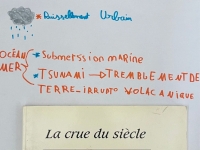 * Ruissellement Urbain
OCÉAN * Submerssion marine
MER * TSUNAMI → TREMBLEMENT DE
TERRE - IRRUPTO VOLACANIQUE
La crue du siècle